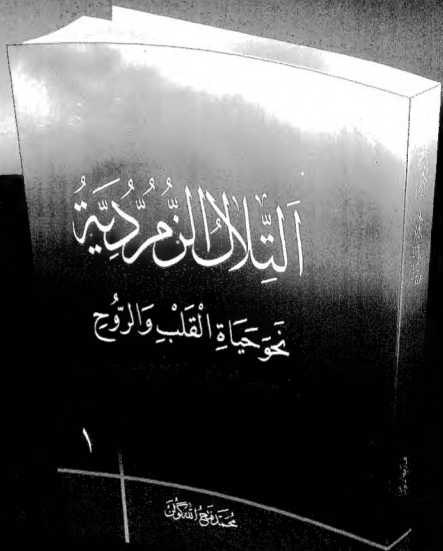 اَلتِّلَالُ الزُّمُرُّدِيَّةُ
نَحْوَ حَيَاةِ الْقَلْبِ وَالرُّوحِ
١
محمد فتح الله كولن